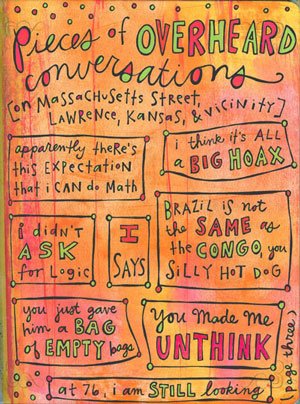 pieces of OVERHEARD
conversations
[on MASSACHUSETTS STREET,
LAWRENCE, KANSAS, & VICINITY]
apparently there's
this EXPECTATION
that i CAN do Math
i think it's ALL
a BIG HOAX
i didn't
ASK
for LOGIC
I
SAYS
BRAZIL is not
the SAME as
the CONGO, you
SILLY HOT DOG
you just gave
him a BAG
of EMPTY bags
You Made Me
UNTHINK
at 76, i am STILL looking
(page three.)